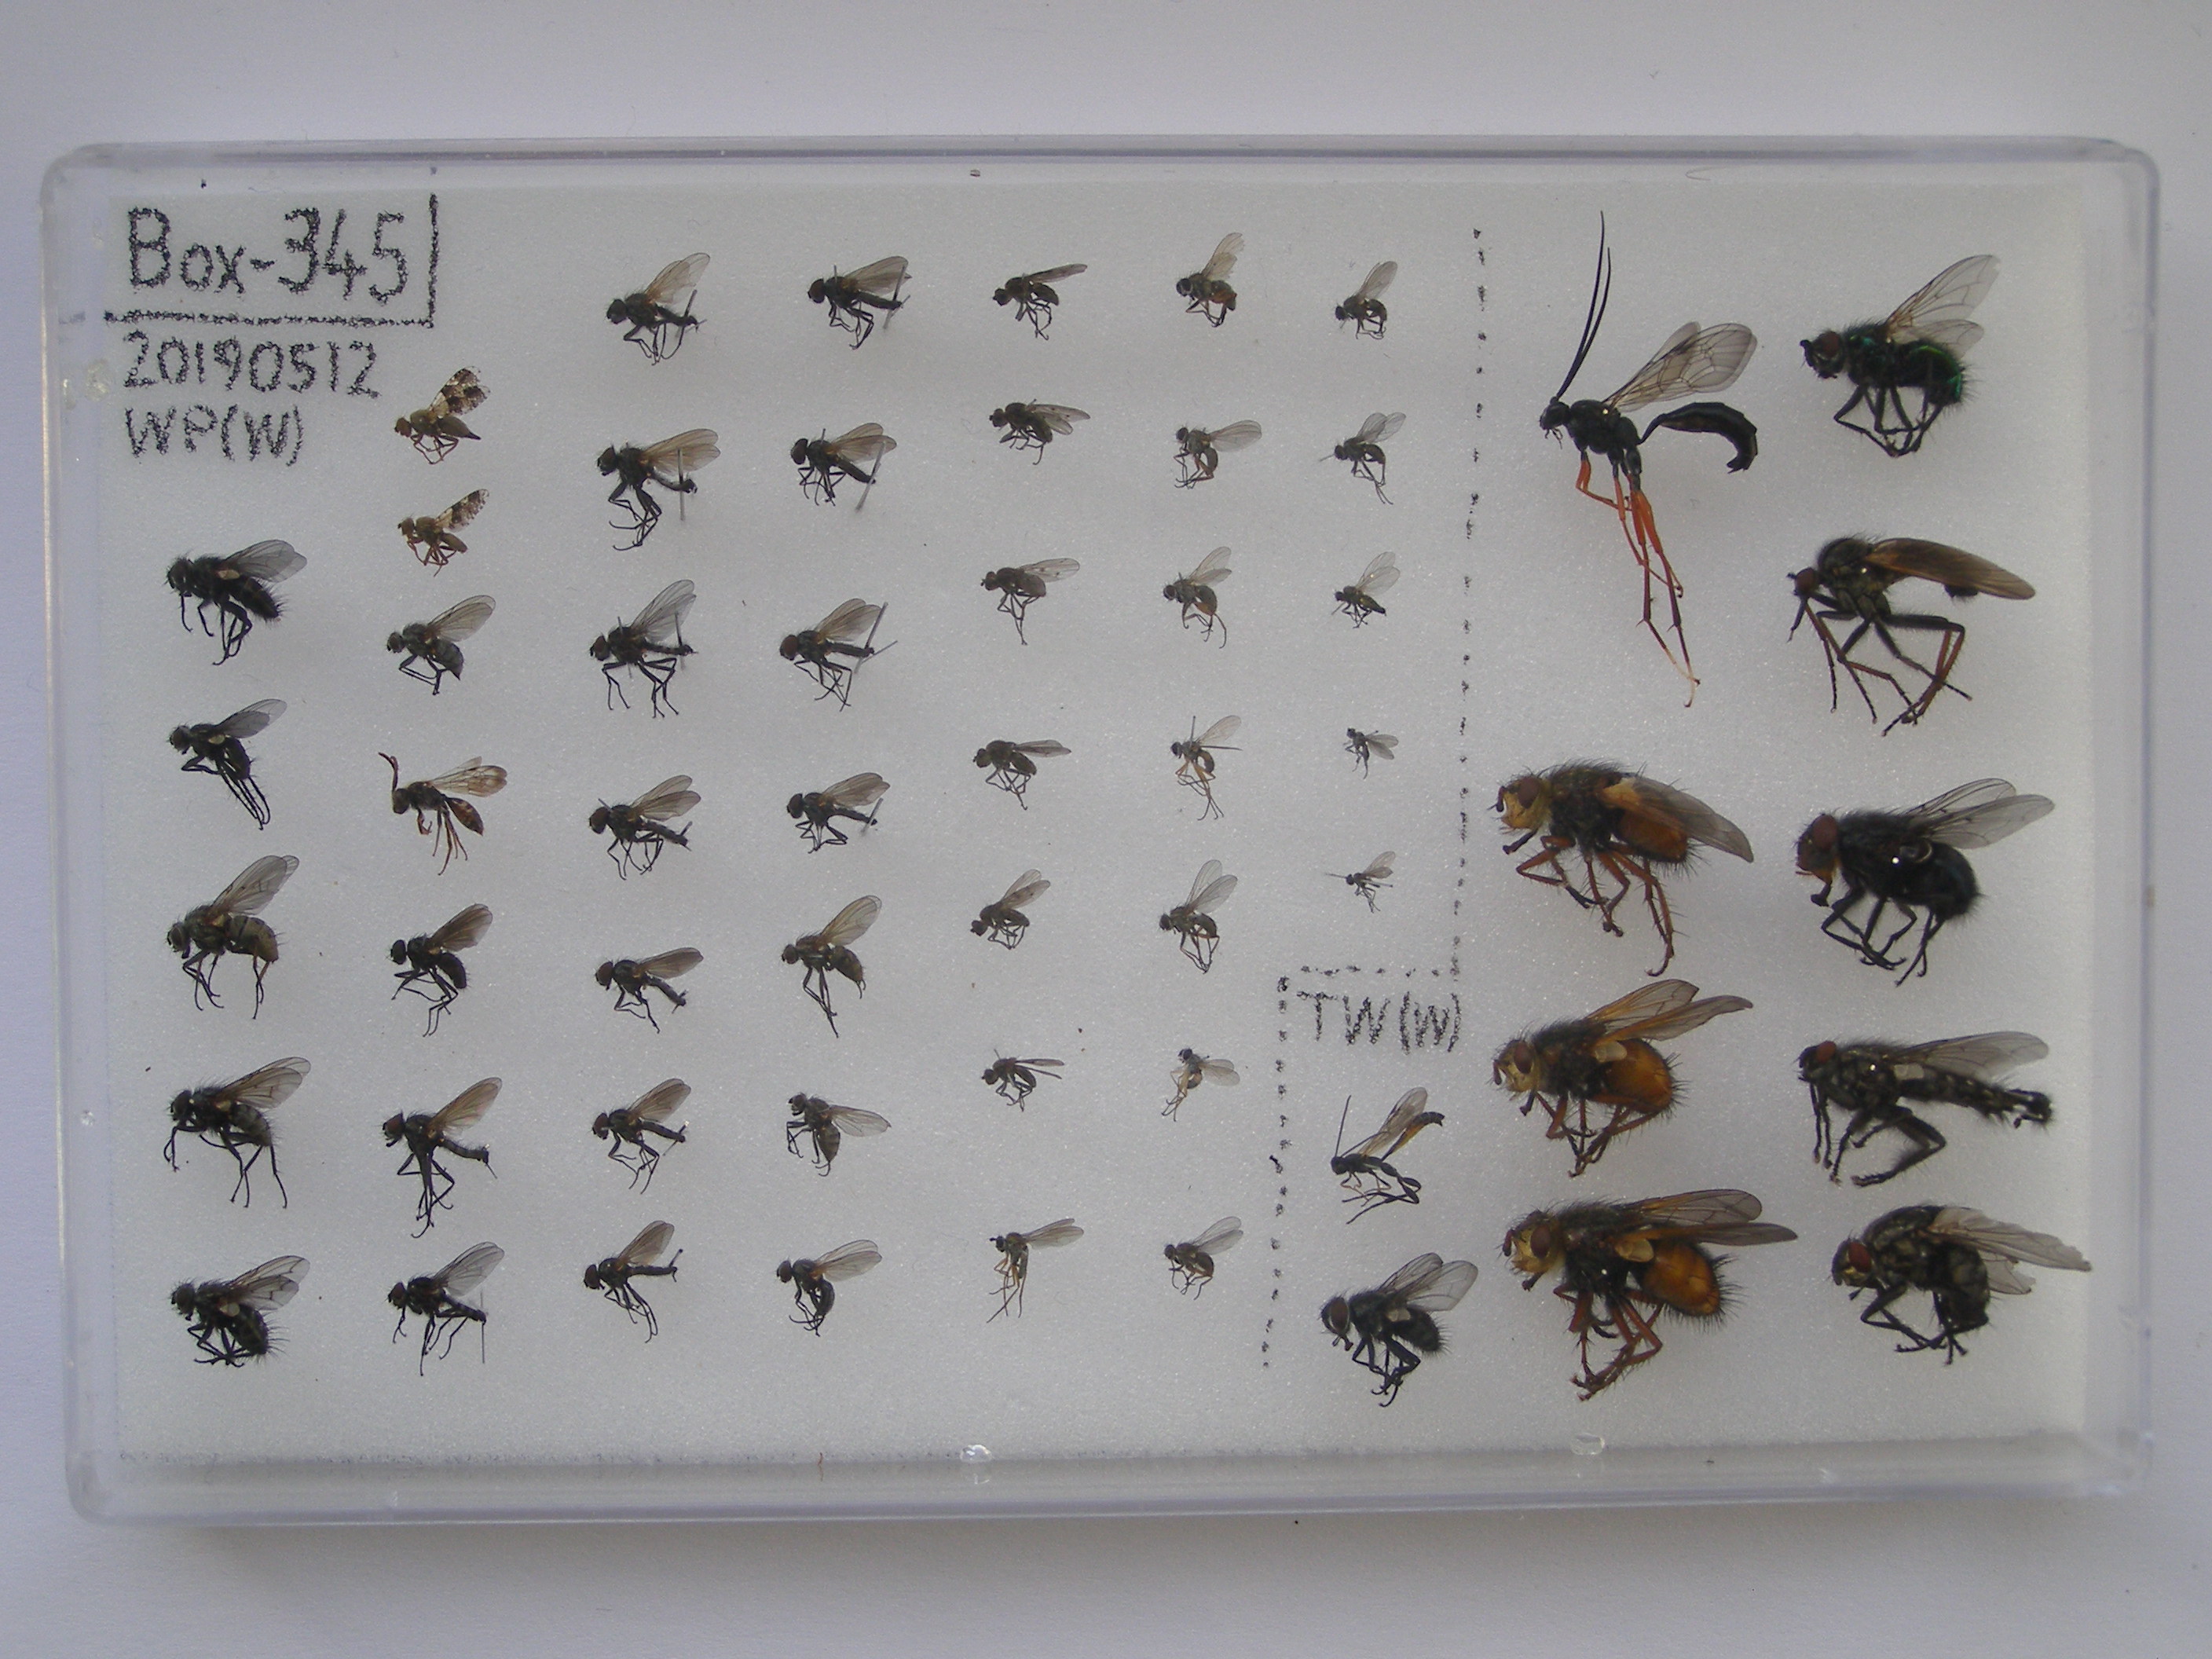 Box-345
20190512
WP(W)
TW(W)